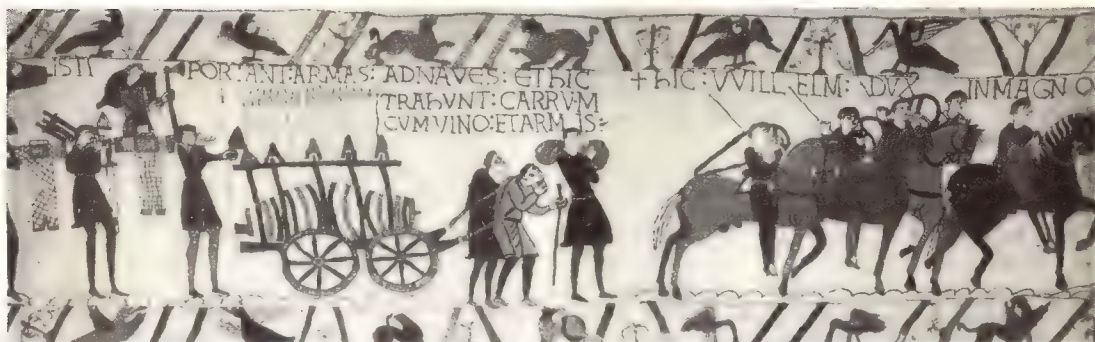 ISTI PORTANT:ARMAS: ADNAVES: EThIC
TRAhUNT: CARRVM
CVMVINO:ETARMIS:
+hIC:VVILLELM: DVX INMAGNO